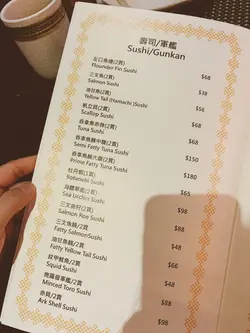 壽司/軍艦
Sushi/Gunkan
左口魚邊(2貫)
Flounder Fin Sushi $68
三文魚(2貫)
Salmon Sushi $38
油甘魚(2貫)
Yellow Tail (Hamachi)Sushi $56
帆立貝(2貫)
Scallop Sushi $68
吞拿魚赤身(2貫)
Tuna Sushi $68
吞拿魚腩中腩(2貫)
Semi Fatty Tuna Sushi $150
吞拿魚腩大腩(2貫)
Prime Fatty Tuna Sushi $180
牡丹蝦(1貫)
Botanebi Sushi $65
海膽軍艦(2貫)
Sea Urchin Sushi $98
三文魚籽(2貫)
Salmon Roe Sushi $88
三文魚腩/2貫
Fatty SalmonSushi $48
油甘魚腩/2貫
Fatty Yellow Tail Sushi $66
紋甲魷魚/2貫
Squid Sushi $48
拖羅蓉軍艦/2貫
Minced Toro Sushi $88
赤貝/2貫
Ark Shell Sushi $98